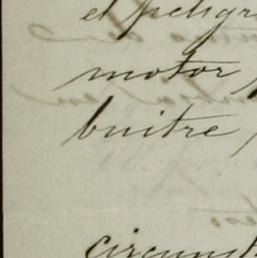 el peligr
motor
buitre,
circunst